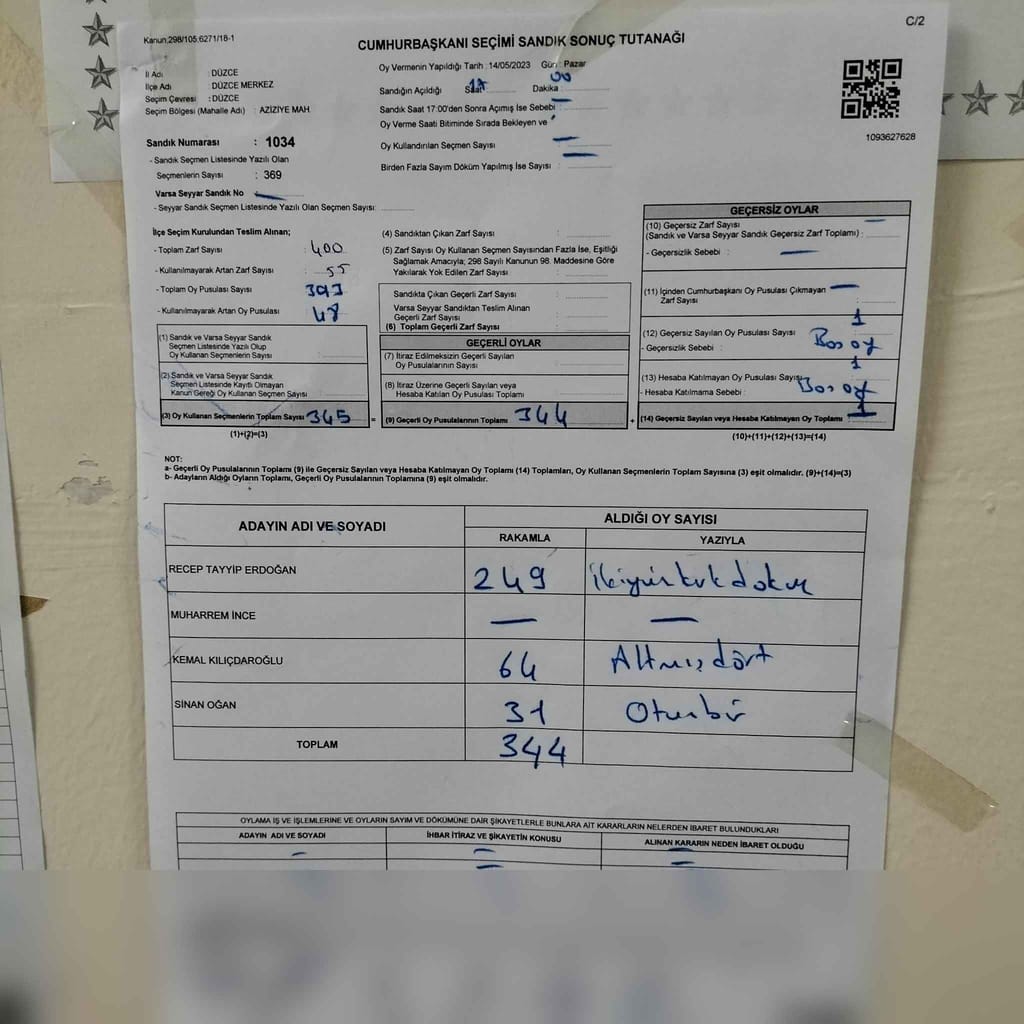 C/2
Kanun,298/105,6271/18-1
CUMHURBAŞKANI SEÇİMİ SANDIK SONUÇ TUTANAĞI
İl Adı : DÜZCE
İlçe Adı : DÜZCE MERKEZ
Seçim Çevresi : DÜZCE
Seçim Bölgesi (Mahalle Adı) : AZİZİYE MAH
Sandık Numarası : 1034
- Sandık Seçmen Listesinde Yazılı Olan
Seçmenlerin Sayısı : 369
Varsa Seyyar Sandık No
- Seyyar Sandık Seçmen Listesinde Yazılı Olan Seçmen Sayısı:
Oy Vermenin Yapıldığı Tarih : 14/05/2023 Gün : Pazar
Sandığın Açıldığı Saat Dakika 00
Sandık Saat 17:00'den Sonra Açımış İse Sebebi :
Oy Verme Saati Bitiminde Sırada Bekleyen ve
Oy Kullandırılan Seçmen Sayısı
Birden Fazla Sayım Döküm Yapılmış İse Sayısı :
1093627628
İlçe Seçim Kurulundan Teslim Alınan;
- Toplam Zarf Sayısı : 400
- Kullanılmayarak Artan Zarf Sayısı : 55
- Toplam Oy Pusulası Sayısı : 393
- Kullanılmayarak Artan Oy Pusulası : 48
(1) Sandık ve Varsa Seyyar Sandık
Seçmen Listesinde Yazılı Olup
Oy Kullanan Seçmenlerin Sayısı :
(2) Sandık ve Varsa Seyyar Sandık
Seçmen Listesinde Kayıtlı Olmayan
Kanun Gereği Oy Kullanan Seçmen Sayısı :
(3) Oy Kullanan Seçmenlerin Toplam Sayısı : 345 =
(1)+(2)=(3)
(4) Sandıktan Çıkan Zarf Sayısı :
(5) Zarf Sayısı Oy Kullanan Seçmen Sayısından Fazla İse, Eşitliği
Sağlamak Amacıyla; 298 Sayılı Kanunun 98. Maddesine Göre
Yakılarak Yok Edilen Zarf Sayısı :
Sandıkta Çıkan Geçerli Zarf Sayısı :
Varsa Seyyar Sandıktan Teslim Alınan
Geçerli Zarf Sayısı :
(6) Toplam Geçerli Zarf Sayısı :
GEÇERLİ OYLAR
(7) İtiraz Edilmeksizin Geçerli Sayılan
Oy Pusulalarının Sayısı :
(8) İtiraz Üzerine Geçerli Sayılan veya
Hesaba Katılan Oy Pusulası Toplamı :
(9) Geçerli Oy Pusulalarının Toplamı : 344 +
GEÇERSİZ OYLAR
(10) Geçersiz Zarf Sayısı
(Sandık ve Varsa Seyyar Sandık Geçersiz Zarf Toplamı) :
- Geçersizlik Sebebi :
(11) İçinden Cumhurbaşkanı Oy Pusulası Çıkmayan
Zarf Sayısı :
(12) Geçersiz Sayılan Oy Pusulası Sayısı : 1
- Geçersizlik Sebebi : Boş oy
(13) Hesaba Katılmayan Oy Pusulası Sayısı : 1
- Hesaba Katılmama Sebebi : Boş oy
(14) Geçersiz Sayılan veya Hesaba Katılmayan Oy Toplamı : 1
(10)+(11)+(12)+(13)=(14)
NOT:
a- Geçerli Oy Pusulalarının Toplamı (9) ile Geçersiz Sayılan veya Hesaba Katılmayan Oy Toplamı (14) Toplamları, Oy Kullanan Seçmenlerin Toplam Sayısına (3) eşit olmalıdır. (9)+(14)=(3)
b- Adayların Aldığı Oyların Toplamı, Geçerli Oy Pusulalarının Toplamına (9) eşit olmalıdır.
ADAYIN ADI VE SOYADI ALDIĞI OY SAYISI
RAKAMLA YAZIYLA
RECEP TAYYİP ERDOĞAN 249 ikiyüzkırkdokuz
MUHARREM İNCE — —
KEMAL KILIÇDAROĞLU 64 Altmışdört
SİNAN OĞAN 31 Oturbir
TOPLAM 344
OYLAMA İŞ VE İŞLEMLERİNE VE OYLARIN SAYIM VE DÖKÜMÜNE DAİR ŞİKAYETLERLE BUNLARA AİT KARARLARIN NELERDEN İBARET BULUNDUKLARI
ADAYIN ADI VE SOYADI İHBAR İTİRAZ VE ŞİKAYETİN KONUSU ALINAN KARARIN NEDEN İBARET OLDUĞU